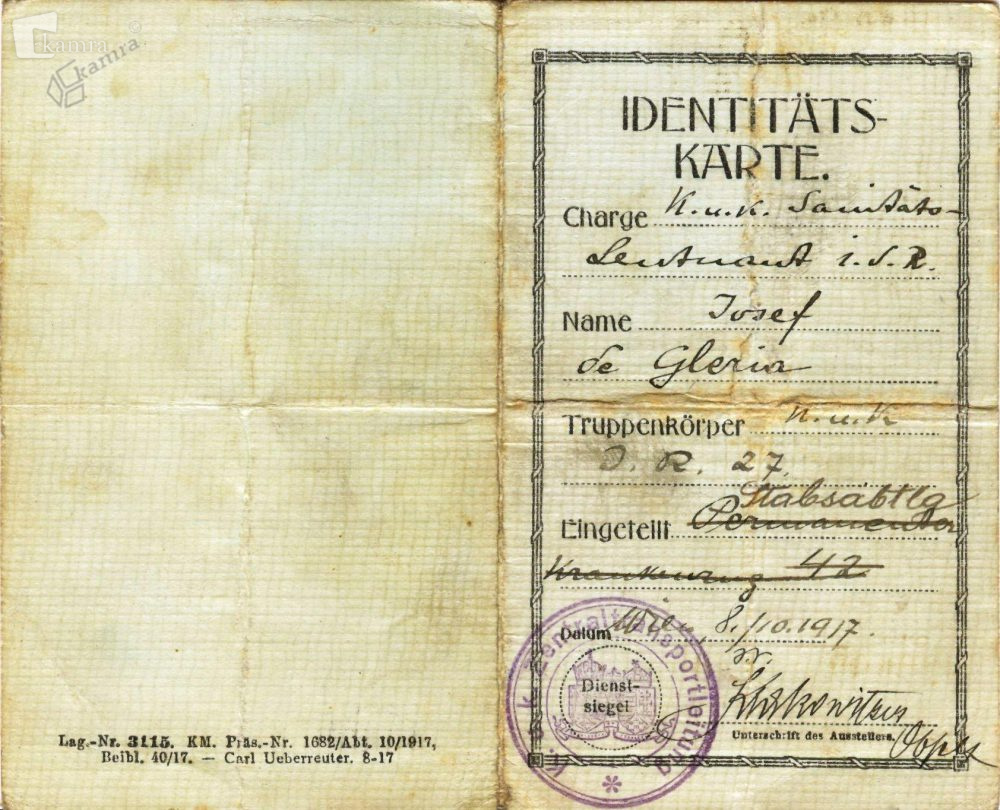 kamra
kamra©
Lag.-Nr. 3115. KM. Präs.-Nr. 1682/Abt. 10/1917,
Beibl. 40/17. — Carl Ueberreuter. 8-17
IDENTITÄTS-
KARTE.
Charge K.u.K. Sanitäts-
Leutnant i.d.R.
Name Josef
de Gleria
Truppenkörper K.u.K
I. R. 27.
Stabsabtlg
Eingeteilt Permanenter
Krankenzug 42
Datum Wien, 8./10.1917.
K. u. K. Zentraltransportleitung
Dienst-
siegel
Unterschrift des Ausstellers.